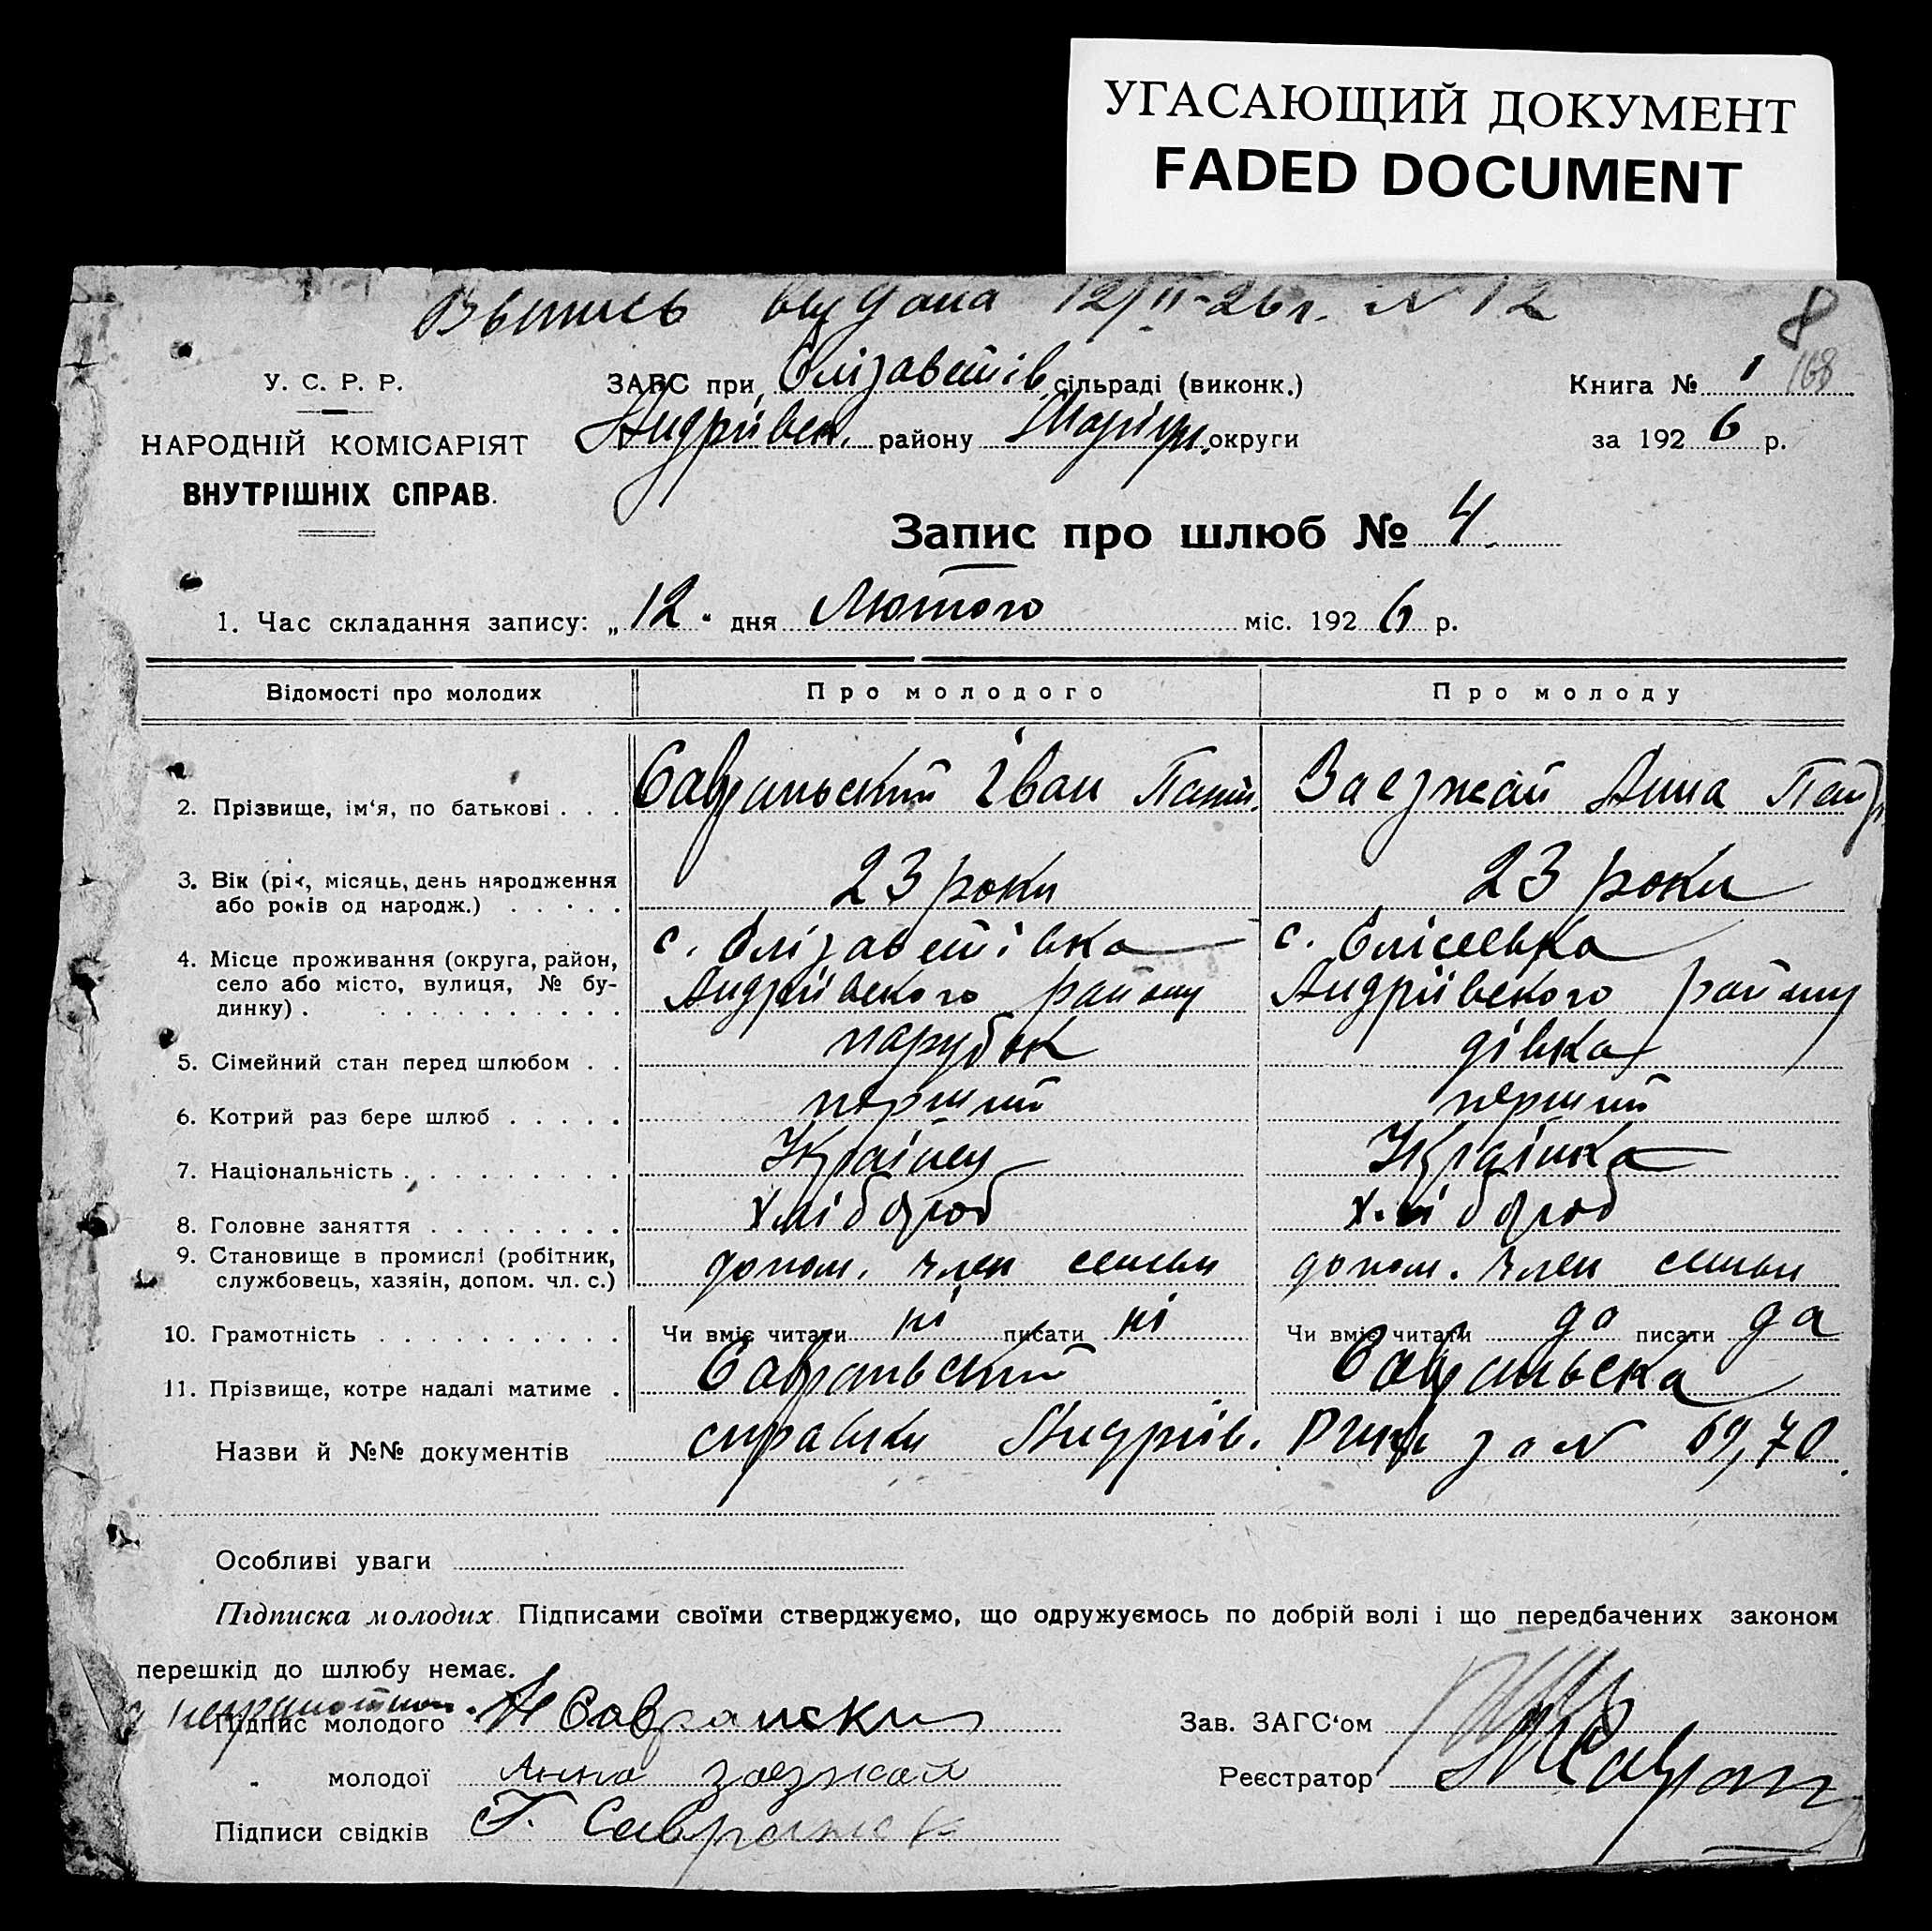 УГАСАЮЩИЙ ДОКУМЕНТ
FADED DOCUMENT
Выпись выдана 12/II-26 г. N 12
8
168
У. С. Р. Р.
НАРОДНІЙ КОМІСАРІЯТ
ВНУТРІШНІХ СПРАВ.
ЗАГС при Єлізаветів. сільраді (виконк.)
Андріївськ. району Маріуп. округи
Книга № 1
за 1926 р.
Запис про шлюб № 4
1. Час складання запису: „12“ дня Лютого міс. 1926 р.
Відомості про молодих Про молодого Про молоду
2. Прізвище, ім‘я, по батькові . . . Савранський Іван Заєзжай Анна
3. Вік (рік, місяць, день народження
або років од народж.) . . . . . 23 роки 23 роки
4. Місце проживання (округа, район,
село або місто, вулиця, № бу-
динку) . . . . . . . . . . .
с. Єлізаветівка
Андріївского району
с. Єлісеевка
Андріївского району
5. Сімейний стан перед шлюбом . . парубок дівка
6. Котрий раз бере шлюб . . . . . перший перший
7. Національність . . . . . . . . . Українец Українка
8. Головне заняття . . . . . . . . хлібороб хлібороб
9. Становище в промислі (робітник,
службовець, хазяін, допом. чл. с.) допом. член семьи допом. член семьи
10. Грамотність . . . . . . . . . . Чи вміє читати ні писати ні Чи вміє читати да писати да
11. Прізвище, котре надалі матиме . Савранський Савранська
Назви й №№ документів справки Андріїв. за N 69,70
Особливі уваги
Підписка молодих Підписами своїми стверджуємо, що одружуємось по добрій волі і що передбачених законом
перешкід до шлюбу немає.
Підпис молодого Савраиски
Зав. ЗАГС‘ом
„ молодої Анна заезжай
Реєстратор
Підписи свідків Г.